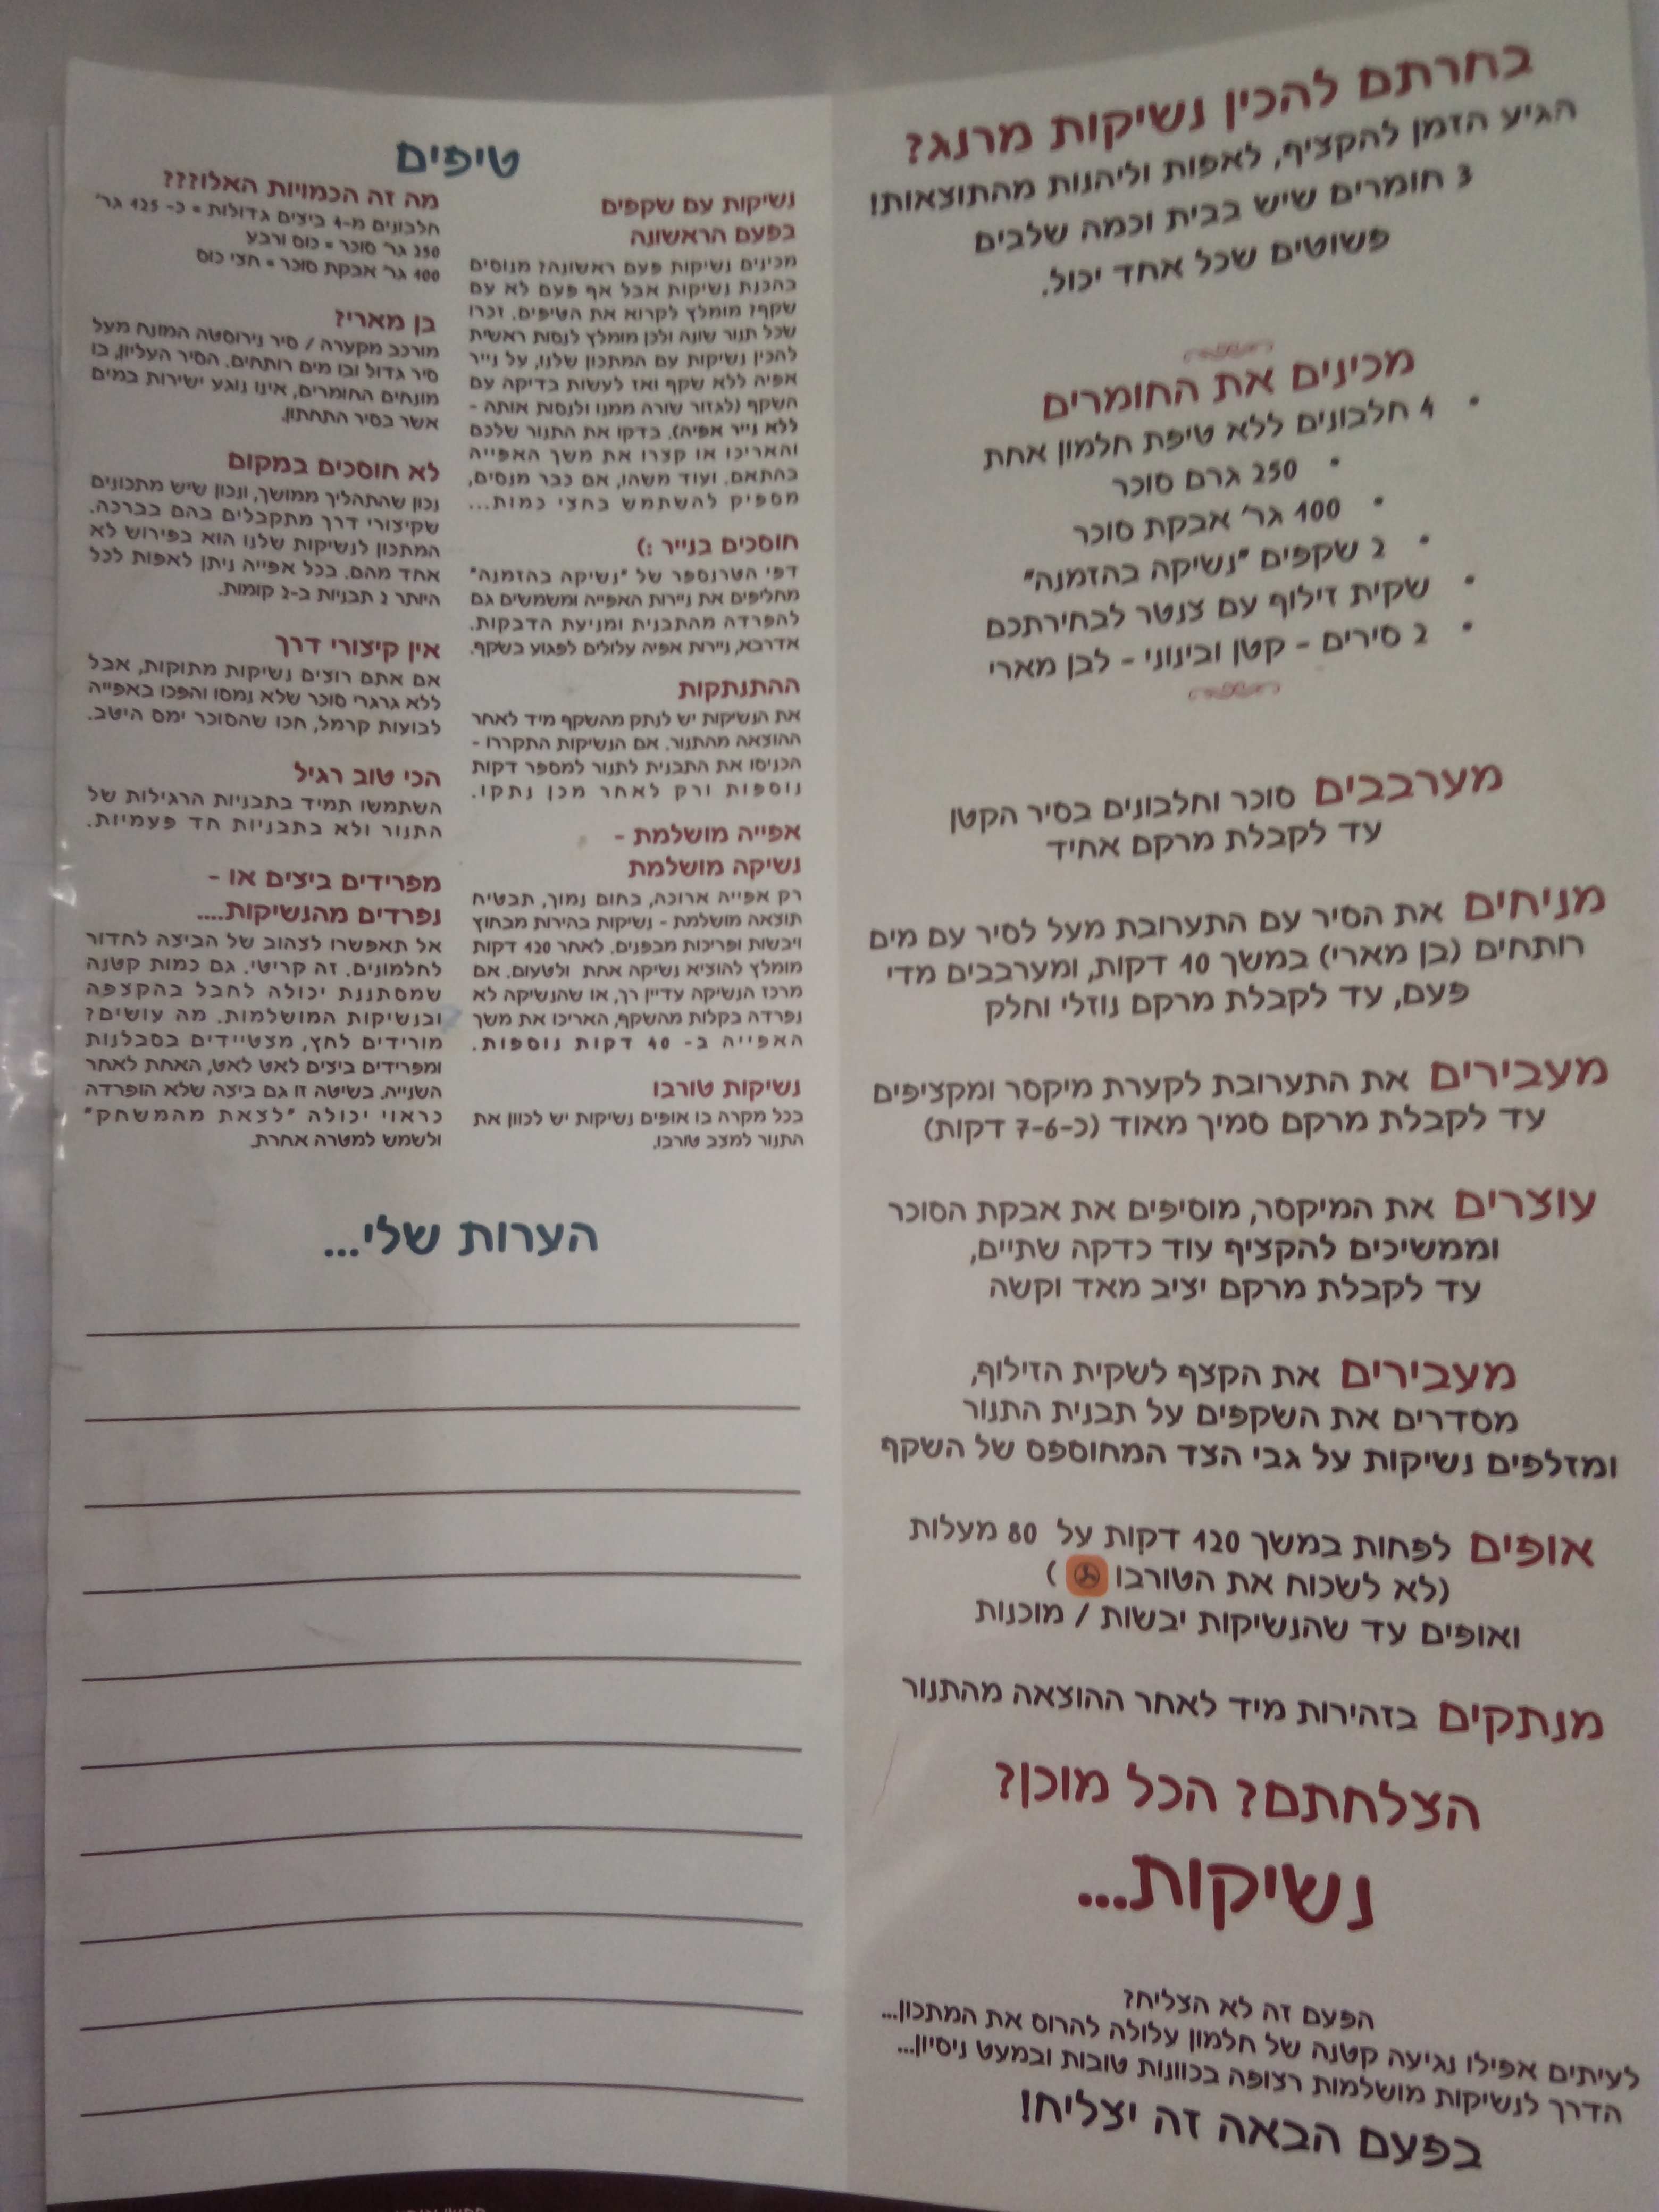 בחרתם להכין נשיקות מרנג?
הגיע הזמן להקציף, לאפות וליהנות מהתוצאות!
3 חומרים שיש בבית וכמה שלבים
פשוטים שכל אחד יכול.
מכינים את החומרים
• 4 חלבונים ללא טיפת חלמון אחת
• 250 גרם סוכר
• 100 גר' אבקת סוכר
• 2 שקפים "נשיקה בהזמנה"
• שקית זילוף עם צנטר לבחירתכם
• 2 סירים - קטן ובינוני - לבן מארי
מערבבים סוכר וחלבונים בסיר הקטן
עד לקבלת מרקם אחיד
מניחים את הסיר עם התערובת מעל לסיר עם מים
רותחים (בן מארי) במשך 10 דקות, ומערבבים מדי
פעם, עד לקבלת מרקם נוזלי וחלק
מעבירים את התערובת לקערת מיקסר ומקציפים
עד לקבלת מרקם סמיך מאוד (כ-7-6 דקות)
עוצרים את המיקסר, מוסיפים את אבקת הסוכר
וממשיכים להקציף עוד כדקה שתיים,
עד לקבלת מרקם יציב מאד וקשה
מעבירים את הקצף לשקית הזילוף,
מסדרים את השקפים על תבנית התנור
ומזלפים נשיקות על גבי הצד המחוספס של השקף
אופים לפחות במשך 120 דקות על 80 מעלות
(לא לשכוח את הטורבו )
ואופים עד שהנשיקות יבשות / מוכנות
מנתקים בזהירות מיד לאחר ההוצאה מהתנור
הצלחתם? הכל מוכן?
נשיקות...
הפעם זה לא הצליח?
לעיתים אפילו נגיעה קטנה של חלמון עלולה להרוס את המתכון...
הדרך לנשיקות מושלמות רצופה בכוונות טובות ובמעט ניסיון...
בפעם הבאה זה יצליח!
טיפים
נשיקות עם שקפים
בפעם הראשונה
מכינים נשיקות פעם ראשונה? מנוסים
בהכנת נשיקות אבל אף פעם לא עם
שקף? מומלץ לקרוא את הטיפים. זכרו
שכל תנור שונה ולכן מומלץ לנסות ראשית
להכין נשיקות עם המתכון שלנו, על נייר
אפיה ללא שקף ואז לעשות בדיקה עם
השקף (לגזור שורה ממנו ולנסות אותה -
ללא נייר אפיה). בדקו את התנור שלכם
והאריכו או קצרו את משך האפייה
בהתאם. ועוד משהו, אם כבר מנסים,
מספיק להשתמש בחצי כמות...
חוסכים בנייר :)
דפי הטרנספר של "נשיקה בהזמנה"
מחליפים את ניירות האפייה ומשמשים גם
להפרדה מהתבנית ומניעת הדבקות.
אדרבא, ניירות אפיה עלולים לפגוע בשקף.
ההתנתקות
את הנשיקות יש לנתק מהשקף מיד לאחר
ההוצאה מהתנור. אם הנשיקות התקררו -
הכניסו את התבנית לתנור למספר דקות
נוספות ורק לאחר מכן נתקו.
אפייה מושלמת -
נשיקה מושלמת
רק אפייה ארוכה, בחום נמוך, תבטיח
תוצאה מושלמת - נשיקות בהירות מבחוץ
ויבשות ופריכות מבפנים. לאחר 120 דקות
מומלץ להוציא נשיקה אחת ולטעום. אם
מרכז הנשיקה עדיין רך, או שהנשיקה לא
נפרדה בקלות מהשקף, האריכו את משך
האפייה ב- 40 דקות נוספות.
נשיקות טורבו
בכל מקרה בו אופים נשיקות יש לכוון את
התנור למצב טורבו.
מה זה הכמויות האלו???
חלבונים מ-4 ביצים גדולות = כ- 125 גר'
250 גר' סוכר = כוס ורבע
100 גר' אבקת סוכר = חצי כוס
בן מארי?
מורכב מקערה / סיר נירוסטה המונח מעל
סיר גדול ובו מים רותחים. הסיר העליון, בו
מונחים החומרים, אינו נוגע ישירות במים
אשר בסיר התחתון.
לא חוסכים במקום
נכון שהתהליך ממושך, ונכון שיש מתכונים
שקיצורי דרך מתקבלים בהם בברכה.
המתכון לנשיקות שלנו הוא בפירוש לא
אחד מהם. בכל אפייה ניתן לאפות לכל
היותר 2 תבניות ב-2 קומות.
אין קיצורי דרך
אם אתם רוצים נשיקות מתוקות, אבל
ללא גרגרי סוכר שלא נמסו והפכו באפייה
לבועות קרמל, חכו שהסוכר ימס היטב.
הכי טוב רגיל
השתמשו תמיד בתבניות הרגילות של
התנור ולא בתבניות חד פעמיות.
מפרידים ביצים או -
נפרדים מהנשיקות....
אל תאפשרו לצהוב של הביצה לחדור
לחלמונים. זה קריטי. גם כמות קטנה
שמסתננת יכולה לחבל בהקצפה
ובנשיקות המושלמות. מה עושים?
מורידים לחץ, מצטיידים בסבלנות
ומפרידים ביצים לאט לאט, האחת לאחר
השנייה. בשיטה זו גם ביצה שלא הופרדה
כראוי יכולה "לצאת מהמשחק"
ולשמש למטרה אחרת.
הערות שלי...